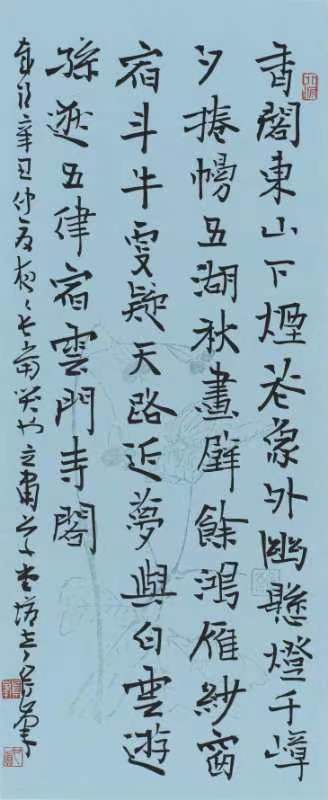 香閣東山下煙花象外幽懸燈千嶂
夕捲幔五湖秋畫壁餘鴻雁紗窗
宿斗牛更疑天路近夢與白雲遊
孫逖五律宿雲門寺閣
歲次辛丑仲夏